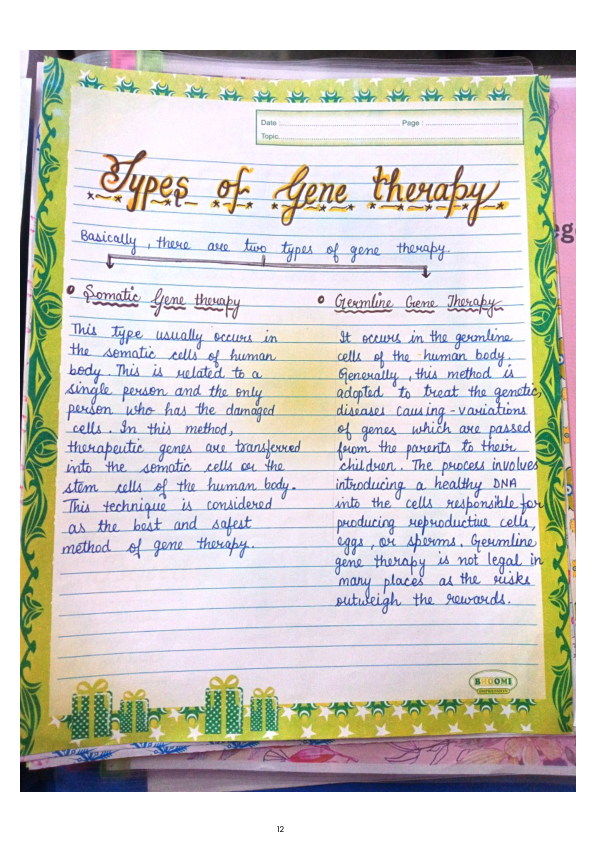 Date : Page :
Topic
Types of Gene therapy
Basically, there are two types of gene therapy.
Somatic Gene therapy
This type usually occurs in
the somatic cells of human
body. This is related to a
single person and the only
person who has the damaged
cells. In this method,
therapeutic genes are transferred
into the somatic cells or the
stem cells of the human body.
This technique is considered
as the best and safest
method of gene therapy.
Germline Gene Therapy
It occurs in the germline
cells of the human body.
Generally, this method is
adopted to treat the genetic,
diseases causing - variations
of genes which are passed
from the parents to their
children. The process involves
introducing a healthy DNA
into the cells responsible for
producing reproductive cells,
eggs, or sperms. Germline
gene therapy is not legal in
many places as the risks
outweigh the rewards.
BHOOMI
eg
12